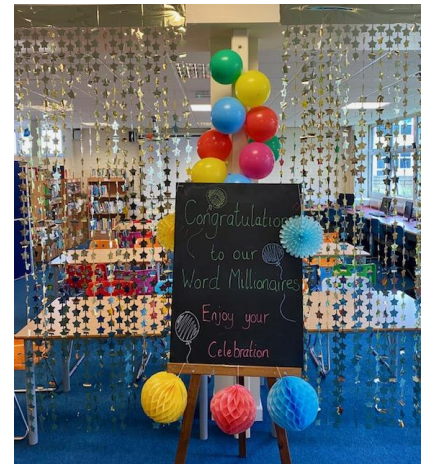 Congratulations
to our
Word Millionaires
Enjoy your
Celebration